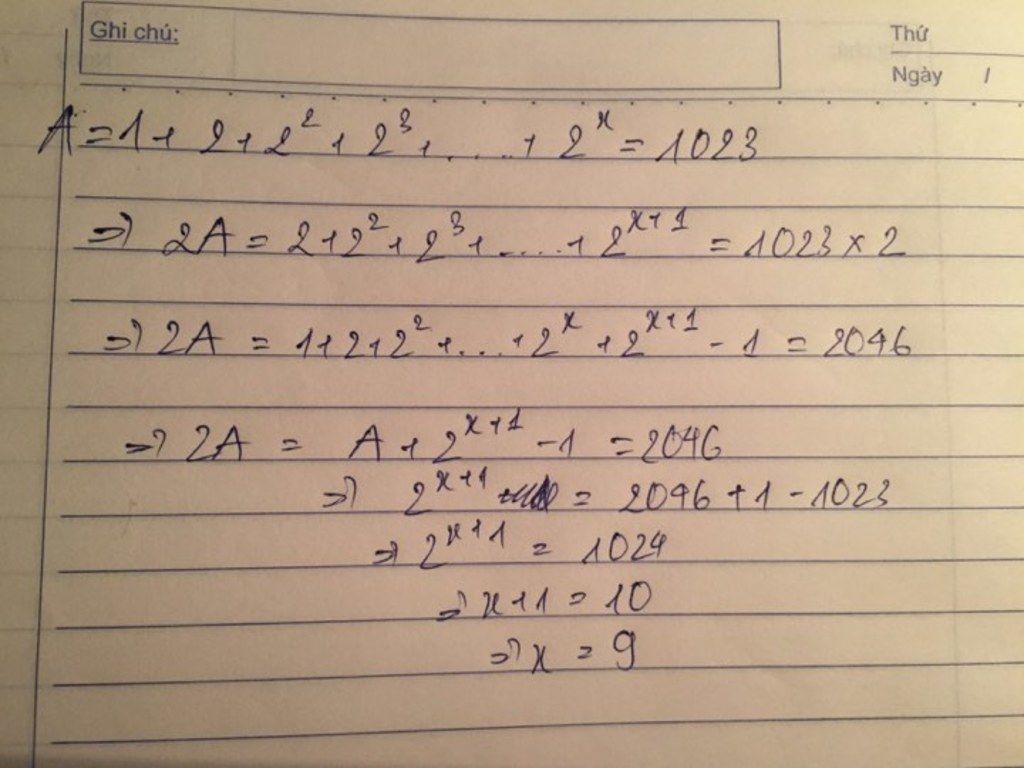 Ghi chú:
Thứ
Ngày /
A = 1 + 2 + 2² + 2³ + ..... + 2ˣ = 1023
=> 2A = 2 + 2² + 2³ + ..... + 2ˣ⁺¹ = 1023 × 2
=> 2A = 1 + 2 + 2² + ... + 2ˣ + 2ˣ⁺¹ - 1 = 2046
=> 2A = A + 2ˣ⁺¹ - 1 = 2046
=> 2ˣ⁺¹ = 2046 + 1 - 1023
=> 2ˣ⁺¹ = 1024
=> x + 1 = 10
=> x = 9